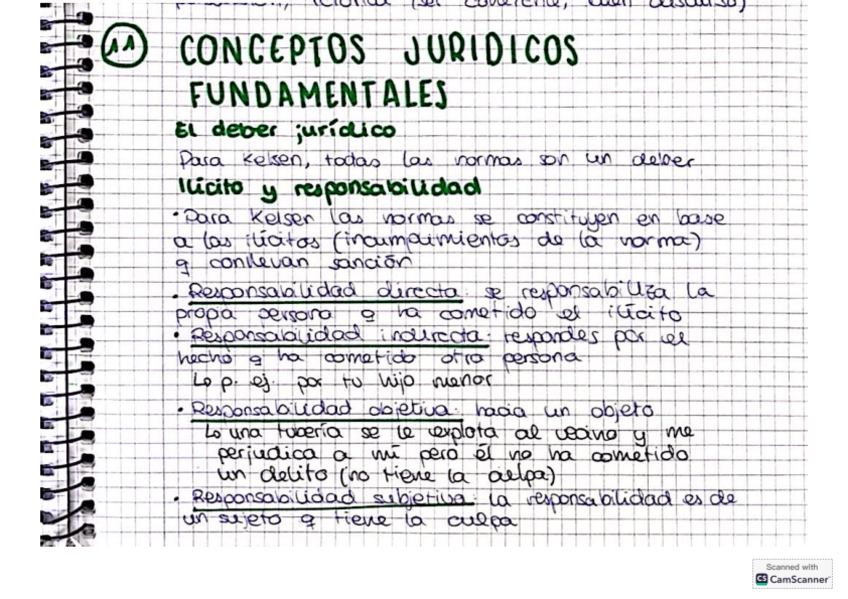 11 CONCEPTOS JURIDICOS
FUNDAMENTALES
El deber jurídico
Para Kelsen, todas las normas son un deber
Ilícito y responsabilidad
• Para Kelsen las normas se constituyen en base
a los ilícitos (incumplimientos de la norma)
q conllevan sanción
• Responsabilidad directa: se responsabiliza la
propia persona q ha cometido el ilícito
• Responsabilidad indirecta: respondes por el
hecho q ha cometido otra persona
↳ p. ej. por tu hijo menor
• Responsabilidad objetiva: hacia un objeto
↳ una tubería se le explota al vecino y me
perjudica a mí pero él no ha cometido
un delito (no tiene la culpa)
• Responsabilidad subjetiva: la responsabilidad es de
un sujeto q tiene la culpa
Scanned with
CS CamScanner